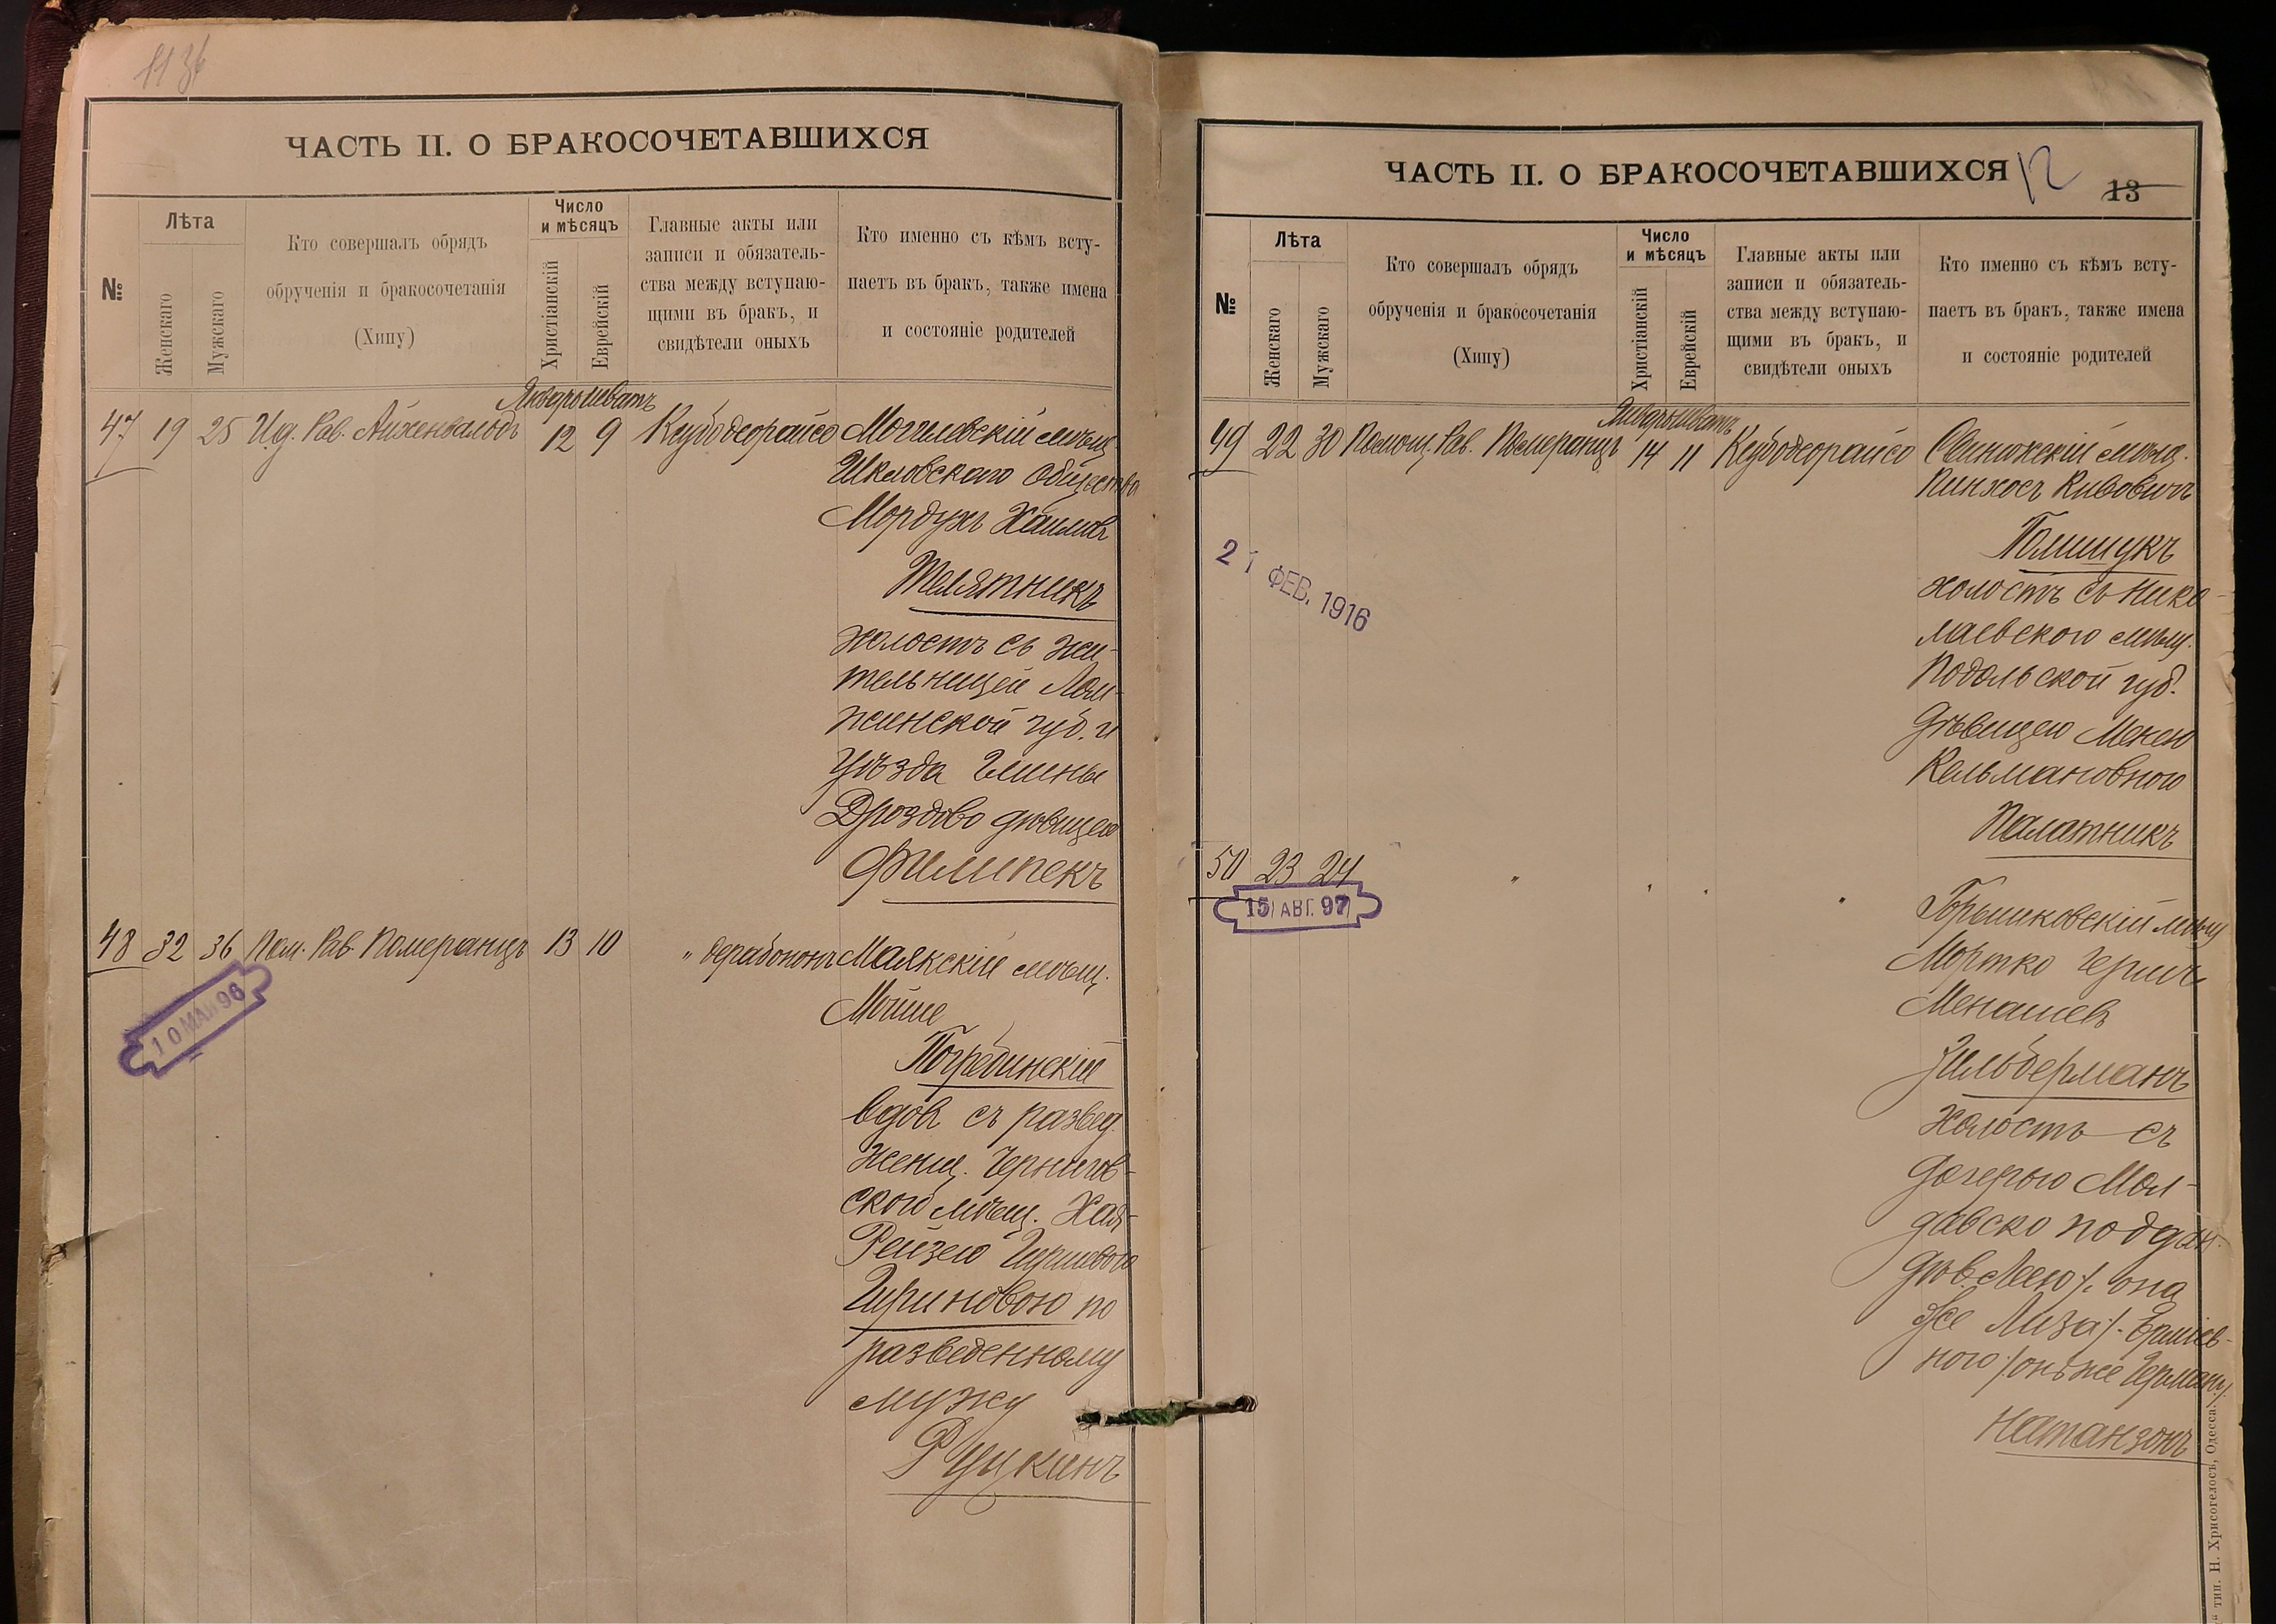 ЧАСТЬ II. О БРАКОСОЧЕТАВШИХСЯ
№
Лѣта
Женскаго
Мужскаго
Кто совершалъ обрядъ
обрученія и бракосочетанія
(Хипу)
Число
и мѣсяцъ
Христіанскій
Еврейскій
Главные акты или
записи и обязатель-
ства между вступаю-
щими въ бракъ, и
свидѣтели оныхъ
Кто именно съ кѣмъ всту-
паетъ въ бракъ, также имена
и состояніе родителей
Январь Шватъ
47 19 25 И.д. Рав. Айхенвальдъ 12 9 Кеубодеорайсо Могилевскій мѣщ.
Шкловскаго Общества
Мордухъ Хаимовъ
Телятникъ
холостъ съ жи-
тельницей Лом-
жинской губ. и
уѣзда Гмины
Дроздово дѣвицею
Филипекъ
48 32 36 Пом. Рав. Померанцъ 13 10 " дерабононъ Маякскій мѣщ.
Мойше
Погребинскій
вдов. съ развед.
женщ. Чернигов-
ского мѣщ. Хая-
Рейзею Гиршевою
Цириновою по
разведенному
мужу
Руцкинъ
10 МАЯ 96
ЧАСТЬ II. О БРАКОСОЧЕТАВШИХСЯ
12
13
№
Лѣта
Женскаго
Мужскаго
Кто совершалъ обрядъ
обрученія и бракосочетанія
(Хипу)
Число
и мѣсяцъ
Христіанскій
Еврейскій
Главные акты или
записи и обязатель-
ства между вступаю-
щими въ бракъ, и
свидѣтели оныхъ
Кто именно съ кѣмъ всту-
паетъ въ бракъ, также имена
и состояніе родителей
Январь Шватъ
49 22 30 Помощ. Рав. Померанцъ 14 11 Кеубодеорайсо Свинюхскій мѣщ.
Пинхосъ Кивовичъ
Полищукъ
холостъ съ Нико-
лаевского мѣщ.
Подольской губ.
дѣвицею Менею
Кельмановною
Палатникъ
21 ФЕВ. 1916
50 23 24 " " " "
15 АВГ. 97
Горышковскій мѣщ
Мортко Гершъ
Менашевъ
Зильберманъ
холостъ съ
дочерью Мол-
давско поддан.
дѣв. Леею /: она
же Лиза/. Ерміев-
ною /:онъ же Германъ/.
Натанзонъ
тип. Н. Хрисогелосъ, Одесса.